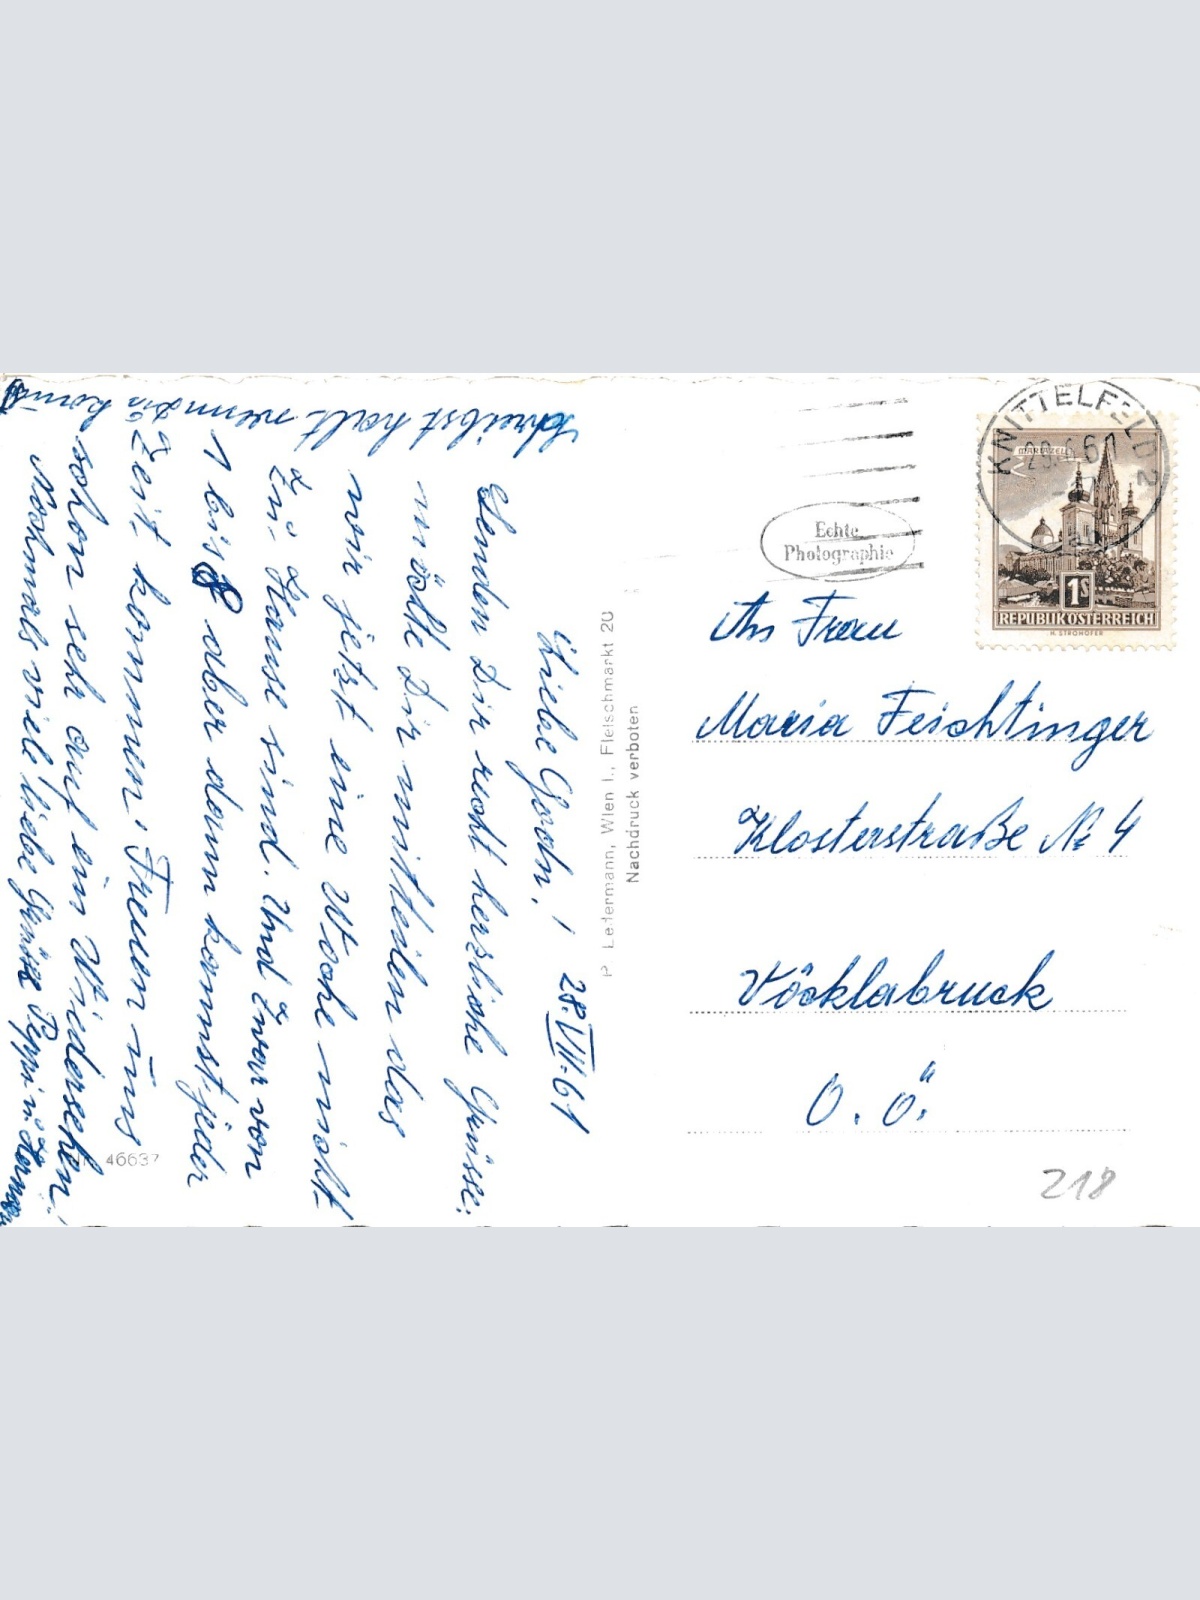 Liebe Godn! 28.VIII.61
Senden Dir recht herzliche Grüsse.
möchte Dir mitteilen das
wir jetzt eine Woche nicht
zu Hause sind. Und zwar von
1 bis 8 aber dann kannst jeder
Zeit kommen. Freuen uns
schon sehr auf ein Wiedersehen.
Nochmals viele liebe Grüsse Peppi u.
schreibst halt wenn Du komst
Echte
Photographie
KNITTELFELD 2
MARIAZELL
1S
REPUBLIK ÖSTERREICH
H. STROHOFER
An Frau
Maria Feichtinger
Klosterstraße Nr 4
Vöcklabruck
O.Ö.
218
P. Ledermann, Wien I., Fleischmarkt 20
Nachdruck verboten
46637